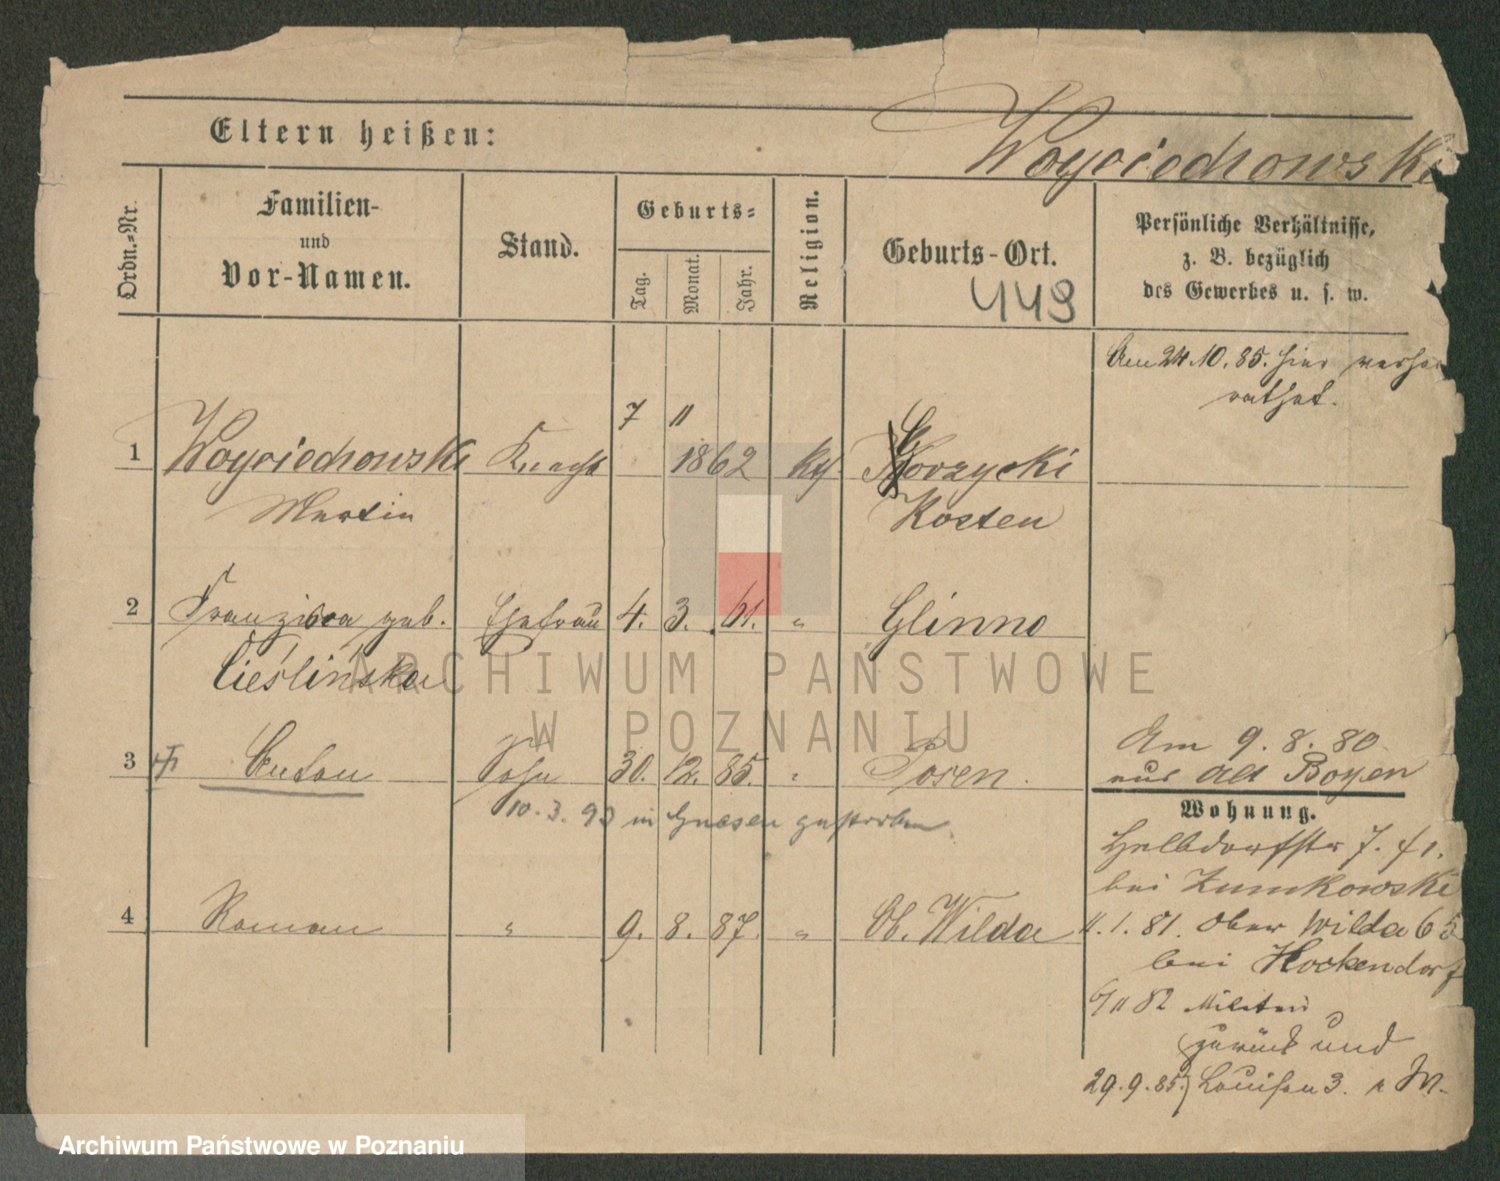 Eltern heißen:
Woyciechowski
Ordn.-Nr.
Familien-
und
Vor-Namen.
Stand.
Geburts-
Tag.
Monat.
Jahr.
Religion.
Geburts-Ort.
449
Persönliche Verhältnisse,
z. B. bezüglich
des Gewerbes u. s. w.
Am 24.10.85. hier verhei
rathet.
7 11
1 Woyciechowski Knecht 1862 kth. Gorzycki
Martin Kosten
2 Franziska geb. Ehefrau 4. 3. 61. " Glinno
Cieślińska
ARCHIWUM PAŃSTWOWE
W POZNANIU
3 Anton Sohn 30. 12. 85. " Posen.
10.3.93 in Gnesen gestorben
Am 9.8.80
aus Alt Boyen
Wohnung.
7.
bei Zumkowski
4 Roman " 9. 8. 87. " Ob. Wilda
11.1.81. Ober Wilda 65
bei Hockendorf
6/11 82 Militär
zurück und
29.9.85. Louisen 3.
Archiwum Państwowe w Poznaniu